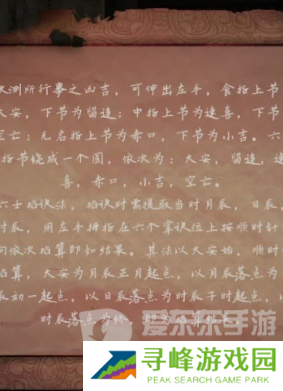 测所行事之凶吉，可伸出左手，食指上节
大安，下节为留连；中指上节为速喜，下节
空亡；无名指上节为赤口，下节为小吉。六
指节绕成一个圆，依次为：大安，留连，速
喜，赤口，小吉，空亡。
六壬掐诀法，掐诀时需提取当时月辰，日辰，
时辰，用左手拇指在六个掌诀位上按顺时针
向依次掐算即知结果。其法以大安始，顺时
掐算，大安为月辰正月起点，以月辰落点为
辰初一起点，以日辰落点为时辰子时起点，
时辰落点为终
爱乐乐手游
寻峰游戏园
PEAK SEARCH GAME PARK